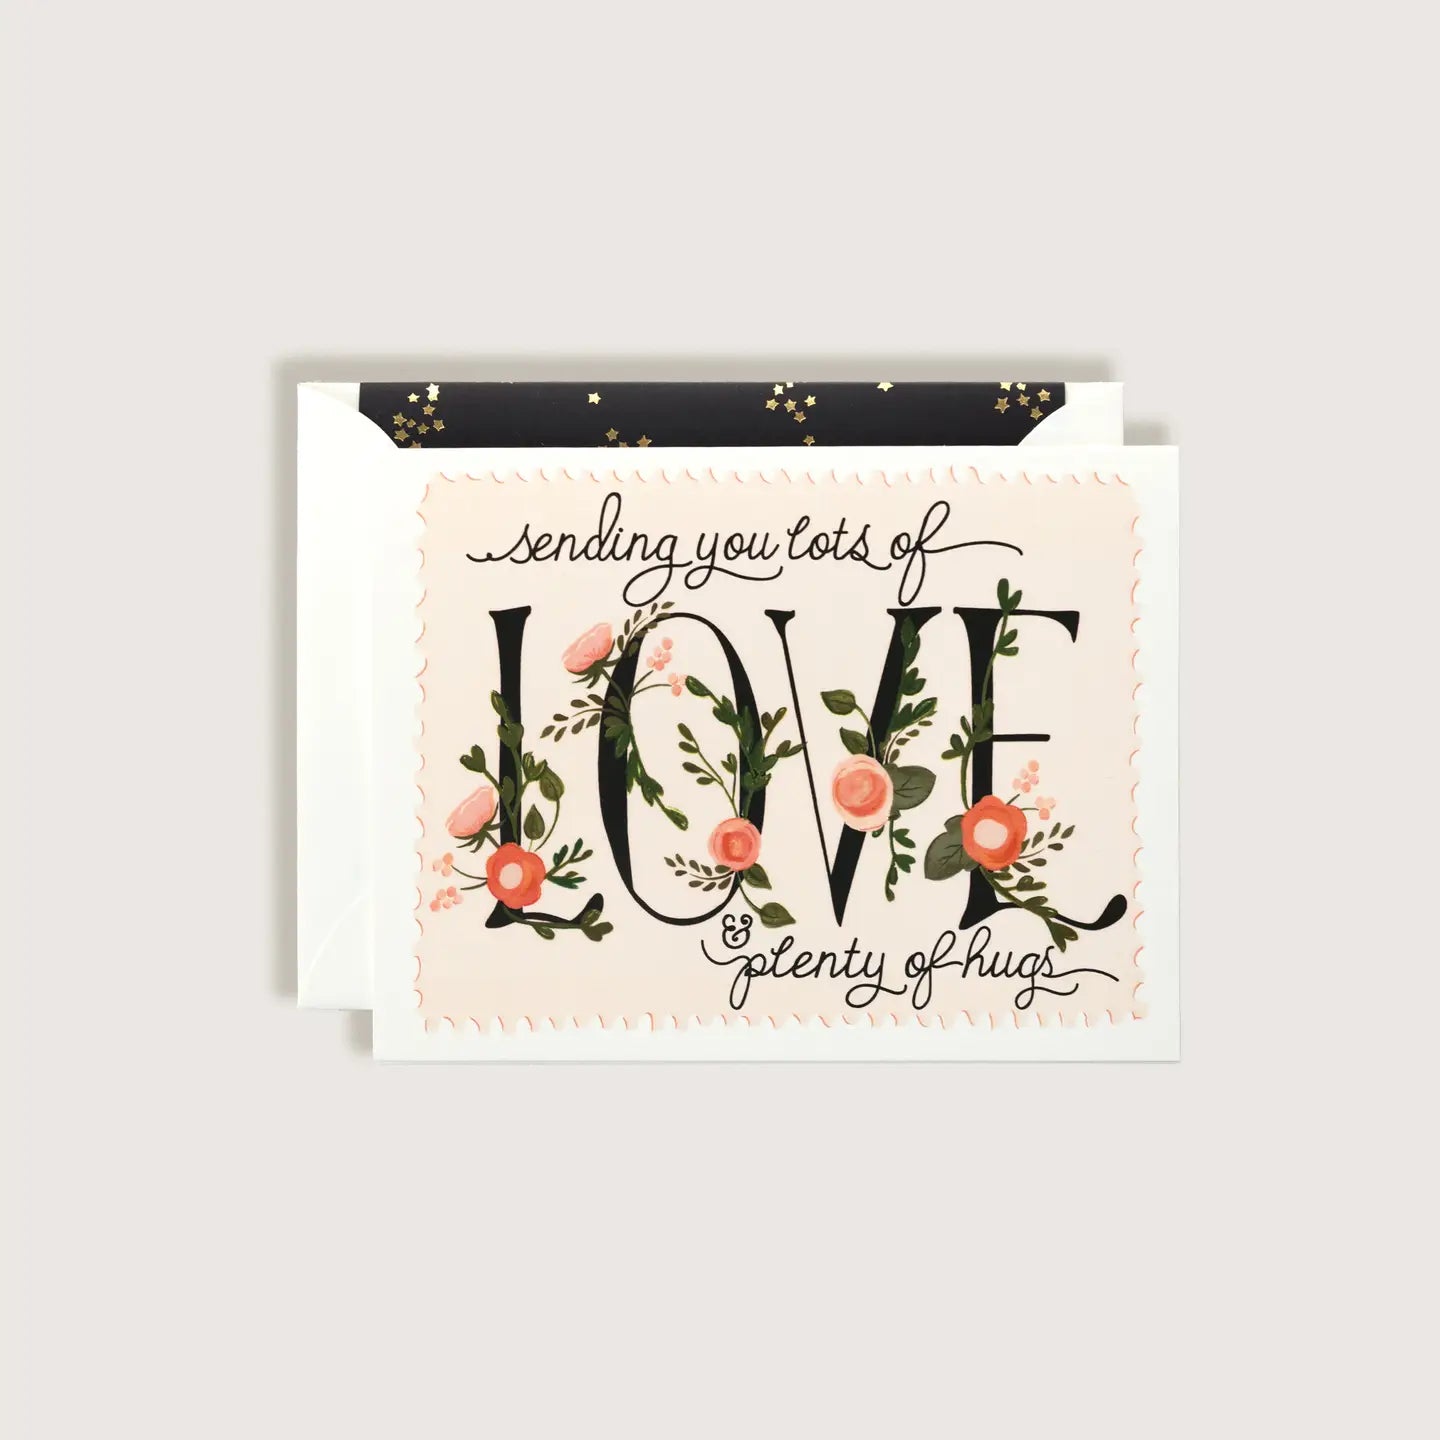 sending you lots of
LOVE
& plenty of hugs